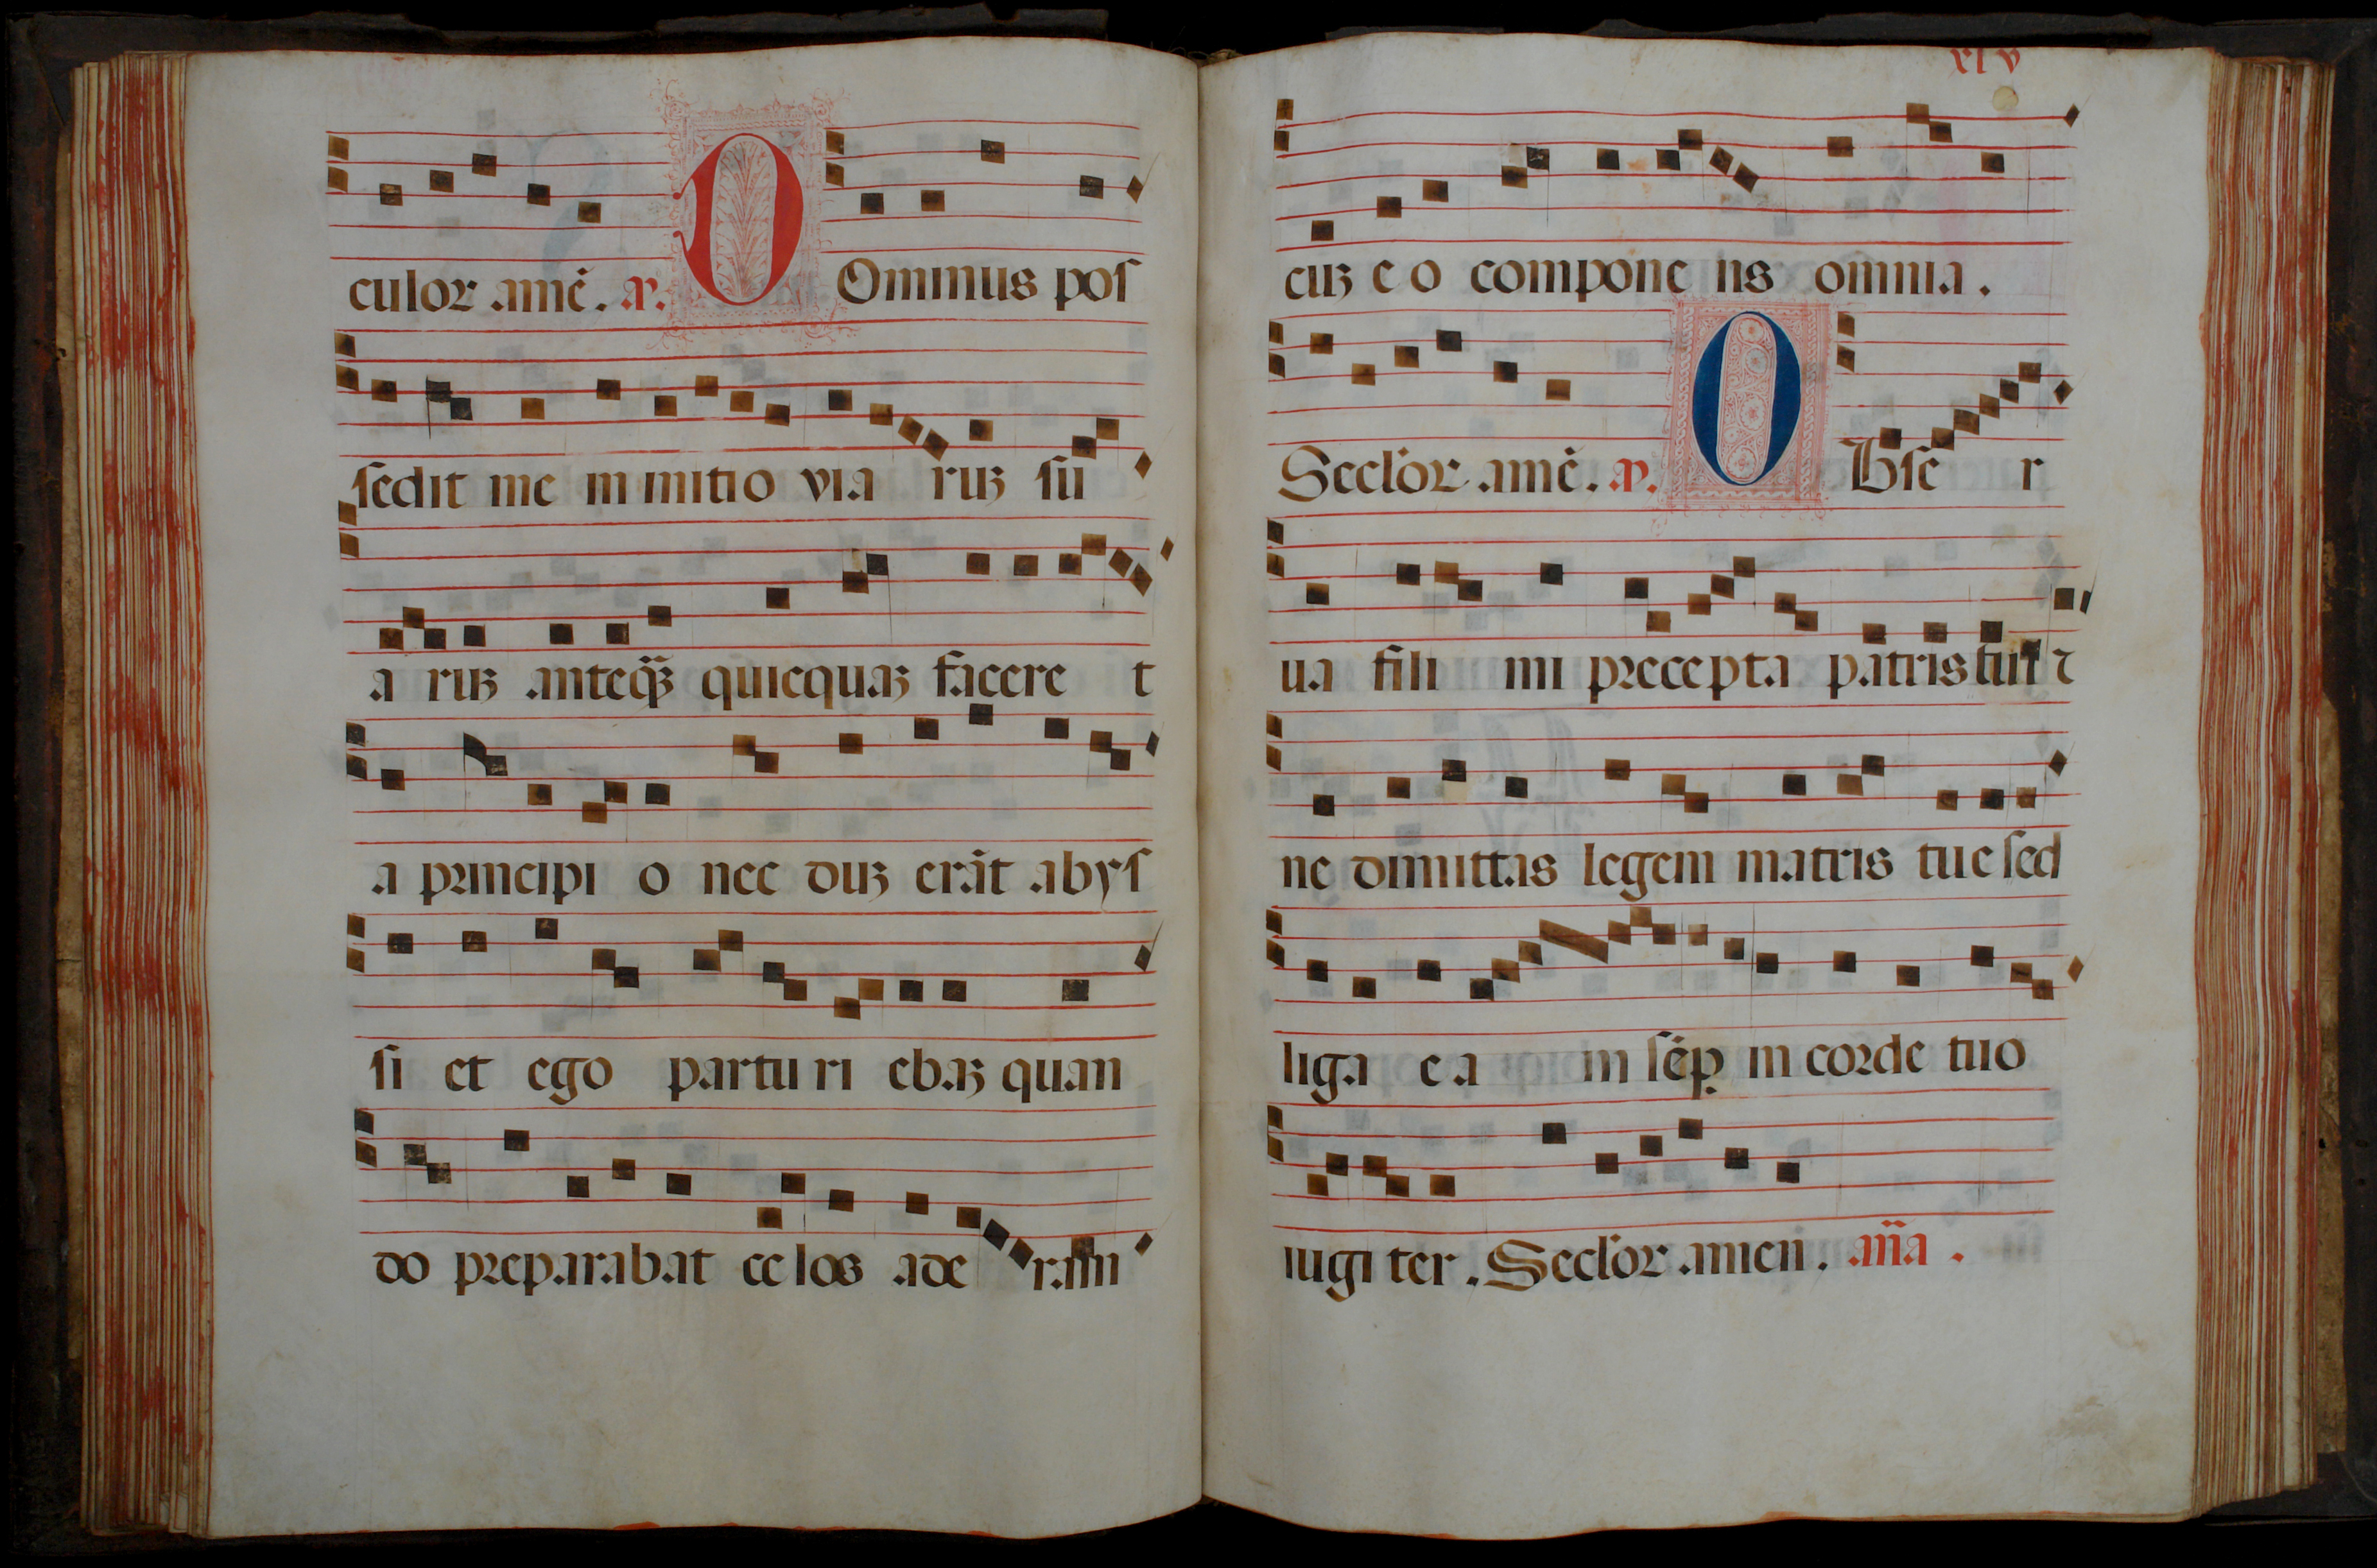 culor amē. aɲ. DOminus pos
sedit me in initio via ruʒ su
a ruʒ anteq̄ʒ quicquaʒ facere t
a principi o nec duʒ erāt abys
si et ego partu ri ebaʒ quan
do preparabat ce los ade ram
xlv
cuʒ e o compone ns omnia.
Seclor amē. aɲ. Obse r
ua fili mi precepta patris tui ⁊
ne dimittas legem matris tue sed
liga e a in sēp̱ in corde tuo
iugi ter. Seclor amen. an̄a.